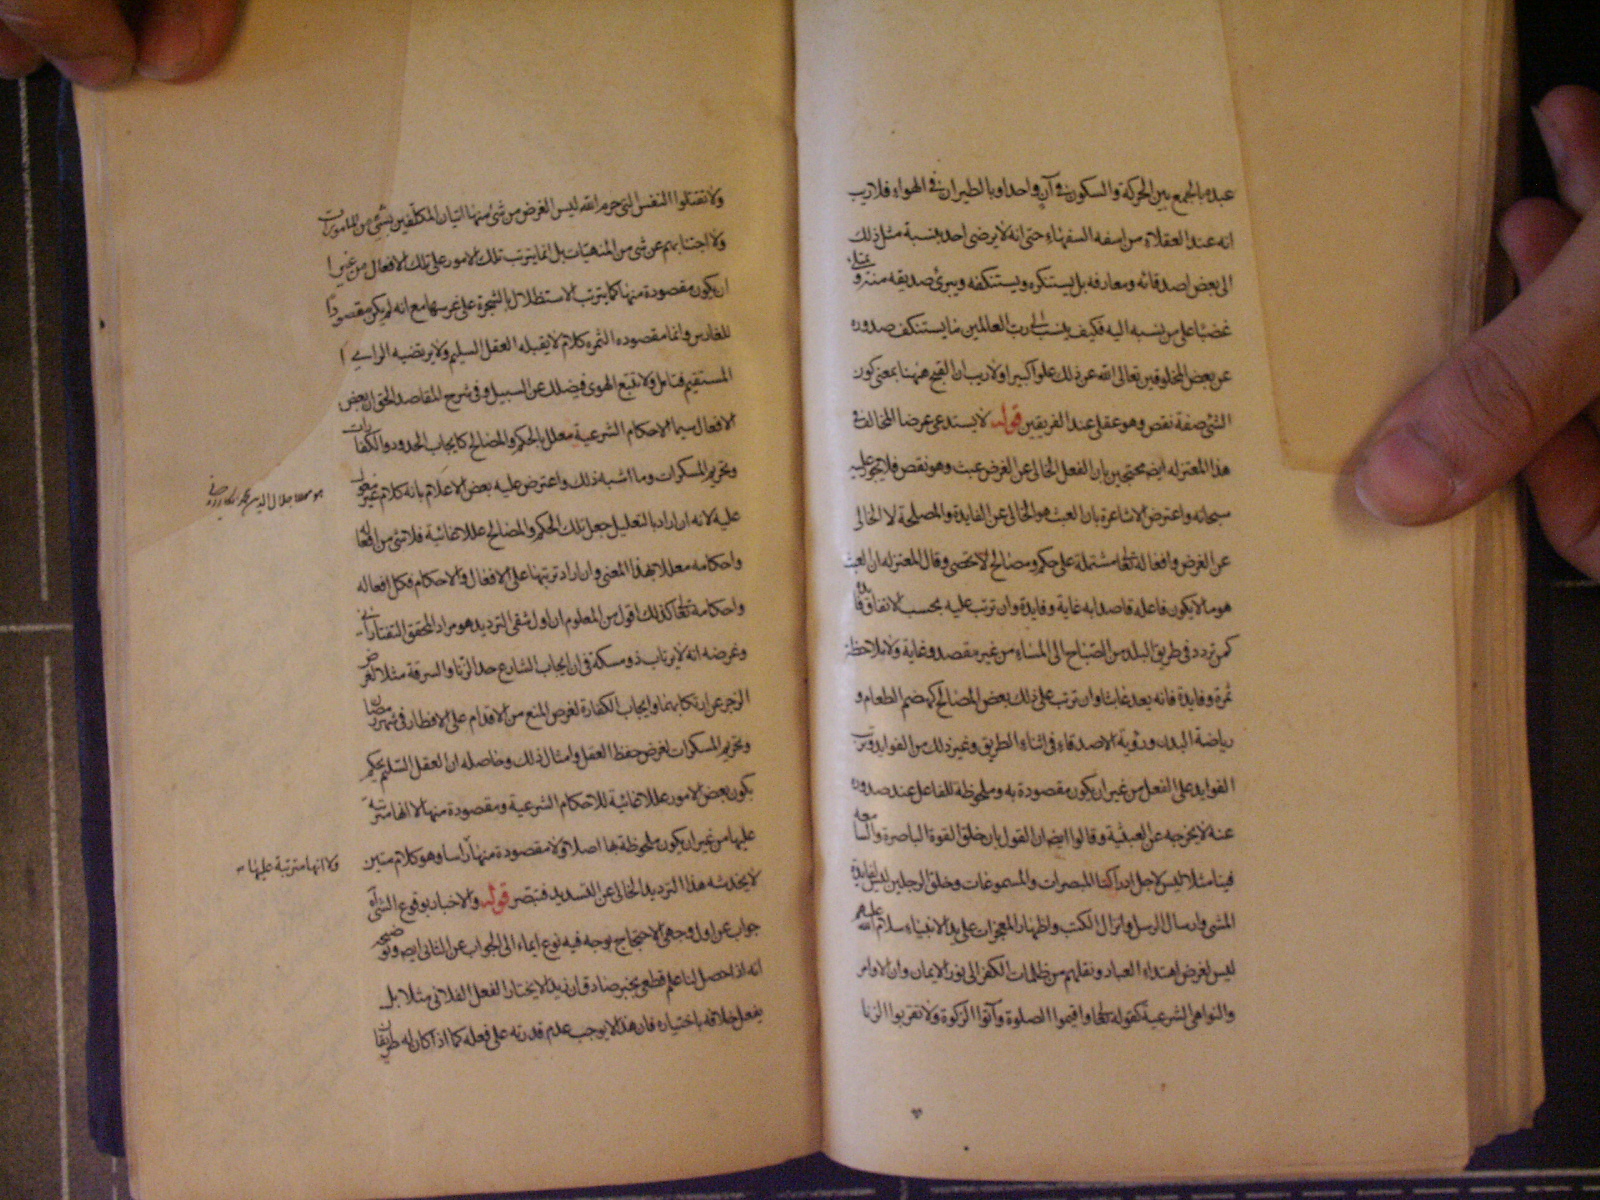 عبده بالجمع بين الحركة والسكون في آن واحد او بالطيران في الهواء فلا ريب
انه عند العقلاء من اسفه السفهاء حتى انه لا يرضى احد بنسبة مثل ذلك
الى بعض اصدقائه ومعارفه بل يستنكره ويستنكفه ويبرئ صديقه منه و يمتلى
غضبا على من نسبه اليه فكيف ينسب الى رب العالمين ما يستنكف صدوره
عن بعض المخلوقين تعالى الله عن ذلك علوا كبيرا ولا ريب ان القبح ههنا بمعنى كون
الشئ صفة نقص وهو عقلى عند الفريقين قوله لا يستدعى عرضا المخالف في
هذا المعتزله ايضا محتجين بان الفعل الخالى عن الغرض عبث وهو نقص فلا يجوز عليه
سبحانه واعترض الاشاعرة بان العبث هو الخالى عن الفايدة والمصلحة لا الخالى
عن الغرض وافعاله تعالى مشتملة على حكم ومصالح لا تحصى وقال المعتزله ان العبث
هو ما لا يكون فاعله قاصدا به غاية وفايدة وان ترتب عليه بحسب الاتفاق فايدة
كمن تردد في طريق البلد من الصباح الى المساء من غير مقصد وغاية ولا ملاحظة
ثمرة وفايدة فانه يعد عابثا وان ترتب على ذلك بعض المصالح كهضم الطعام و
رياضة البدن ورؤية الاصدقاء في اثناء الطريق وغير ذلك من الفوايد وترتب
الفوايد على الفعل من غير ان يكون مقصودة به وملحوظة للفاعل عند صدوره
عنه لا يخرجه عن العبثية وقالوا ايضا ان القول بان خلق القوة الباصرة والسامعه
فينا مثلا ليس لاجل ادراكنا المبصرات والمسموعات وخلق الرجلين ليس لفايدة
المشى وارسال الرسل وانزال الكتب واظهار المعجزات على يد الانبياء سلام الله عليهم
ليس لغرض اهتداء العباد ونقلهم من ظلمات الكفر الى نور الايمان وان الاوامر
والنواهى الشرعية كقوله تعالى واقيموا الصلوة وآتوا الزكوة ولا تقربوا الزنا
ولا تقتلوا النفس التى حرم الله ليس الغرض من شئ منها اتيان المكلفين بشئ من المامورات
ولا اجتنابهم عن شى من المنهيات بل انما يترتب تلك الامور على تلك الافعال من غير
ان يكون مقصودة منها كما يترتب الاستظلال بالشجرة على غرسها مع انه لم يكن مقصودا
للغارس وانما مقصوده الثمره كلام لا يقبله العقل السليم ولا يرتضيه الراى
المستقيم فتامل ولا تتبع الهوى فيضلك عن السبيل و في شرح المقاصد الحق ان بعض
الافعال سيما الاحكام الشرعية معلل بالحكم والمصالح كايجاب الحدود والكفارات
وتحريم المسكرات وما اشبه ذلك واعترض عليه بعض الاعلام بانه كلام غير معول
عليه لانه ان اراد بالتعليل جعل تلك الحكم والمصالح عللا غائية فلا شئ من افعاله
واحكامه معللا بهذا المعنى وان اراد ترتبها على الافعال والاحكام فكل افعاله
واحكامه تعالى كذلك اقول من المعلوم ان اول شقى الترديد هو مراد المحقق التفتازانى
وغرضه انه لا يرتاب ذو مسكة في ان ايجاب الشارع حد الزنا والسرقة مثلا لغرض
الزجر عن ارتكابهما وايجاب الكفارة لغرض المنع من الاقدام على الافطار في شهر رمضان
وتحريم المسكرات لغرض حفظ العقل وامثال ذلك وحاصله ان العقل السليم يحكم
بكون بعض الامور عللا غائية للاحكام الشرعية ومقصودة منها لا انها مترتبة
عليها من غير ان يكون ملحوظة بها اصلا ولا مقصودة منها راسا وهو كلام متين
لا يخدشه هذا الترديد الخالى عن التسديد فتبصر قوله والاخبار بوقوع الشئ
جواب عن اول وجهى الاحتجاج بوجه فيه نوع ايماء الى الجواب عن الثانى ايضا وتوضيحه
انه اذا حصل لنا علم قطعى بخبر صادق ان زيدا لا يختار الفعل الفلانى مثلا بل
يفعل خلافه باختياره فان هذا لا يوجب عدم قدرته على فعله كما اذا كان له طريقان
هو مولانا جلال الدين
ولا انها مترتبة عليها